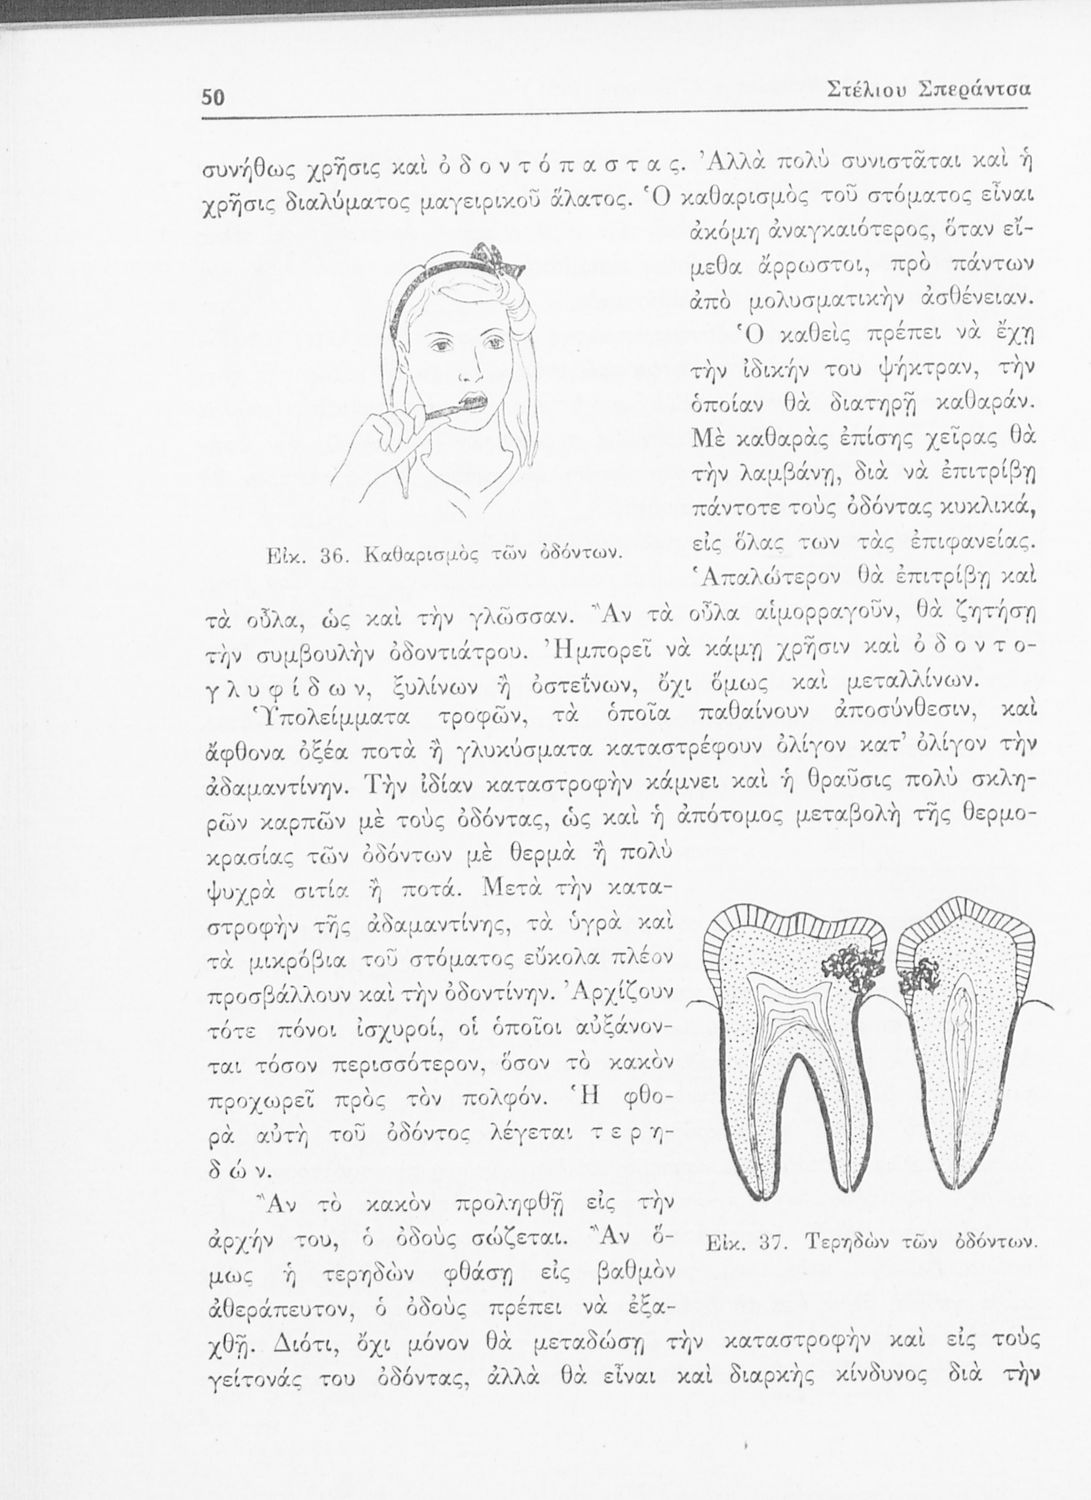 50
Στέλιου Σπεράντσα
συνήθως χρῆσις καὶ ὀδοντόπαστας. Ἀλλὰ πολὺ συνιστᾶται καὶ ἡ
χρῆσις διαλύματος μαγειρικοῦ ἅλατος. Ὁ καθαρισμὸς τοῦ στόματος εἶναι
ἀκόμη ἀναγκαιότερος, ὅταν εἴ-
μεθα ἄρρωστοι, πρὸ πάντων
ἀπὸ μολυσματικὴν ἀσθένειαν.
Ὁ καθεὶς πρέπει νὰ ἔχῃ
τὴν ἰδικήν του ψήκτραν, τὴν
ὁποίαν θὰ διατηρῇ καθαράν.
Μὲ καθαρὰς ἐπίσης χεῖρας θὰ
τὴν λαμβάνῃ, διὰ νὰ ἐπιτρίβῃ
πάντοτε τοὺς ὀδόντας κυκλικά,
εἰς ὅλας των τὰς ἐπιφανείας.
Ἁπαλώτερον θὰ ἐπιτρίβῃ καὶ
Εἰκ. 36. Καθαρισμὸς τῶν ὀδόντων.
τὰ οὖλα, ὡς καὶ τὴν γλῶσσαν. Ἂν τὰ οὖλα αἱμορραγοῦν, θὰ ζητήσῃ
τὴν συμβουλὴν ὀδοντιάτρου. Ἠμπορεῖ νὰ κάμῃ χρῆσιν καὶ ὀδοντο-
γλυφίδων, ξυλίνων ἢ ὀστεΐνων, ὄχι ὅμως καὶ μεταλλίνων.
Ὑπολείμματα τροφῶν, τὰ ὁποῖα παθαίνουν ἀποσύνθεσιν, καὶ
ἄφθονα ὀξέα ποτὰ ἢ γλυκύσματα καταστρέφουν ὀλίγον κατ’ ὀλίγον τὴν
ἀδαμαντίνην. Τὴν ἰδίαν καταστροφὴν κάμνει καὶ ἡ θραῦσις πολὺ σκλη-
ρῶν καρπῶν μὲ τοὺς ὀδόντας, ὡς καὶ ἡ ἀπότομος μεταβολὴ τῆς θερμο-
κρασίας τῶν ὀδόντων μὲ θερμὰ ἢ πολὺ
ψυχρὰ σιτία ἢ ποτά. Μετὰ τὴν κατα-
στροφὴν τῆς ἀδαμαντίνης, τὰ ὑγρὰ καὶ
τὰ μικρόβια τοῦ στόματος εὔκολα πλέον
προσβάλλουν καὶ τὴν ὀδοντίνην. Ἀρχίζουν
τότε πόνοι ἰσχυροί, οἱ ὁποῖοι αὐξάνον-
ται τόσον περισσότερον, ὅσον τὸ κακὸν
προχωρεῖ πρὸς τὸν πολφόν. Ἡ φθο-
ρὰ αὐτὴ τοῦ ὀδόντος λέγεται τερη-
δών.
Ἂν τὸ κακὸν προληφθῇ εἰς τὴν
ἀρχήν του, ὁ ὀδοὺς σώζεται. Ἂν ὅ-
μως ἡ τερηδὼν φθάσῃ εἰς βαθμὸν
ἀθεράπευτον, ὁ ὀδοὺς πρέπει νὰ ἐξα-
Εἰκ. 37. Τερηδὼν τῶν ὀδόντων.
χθῇ. Διότι, ὄχι μόνον θὰ μεταδώσῃ τὴν καταστροφὴν καὶ εἰς τοὺς
γείτονάς του ὀδόντας, ἀλλὰ θὰ εἶναι καὶ διαρκὴς κίνδυνος διὰ τὴν